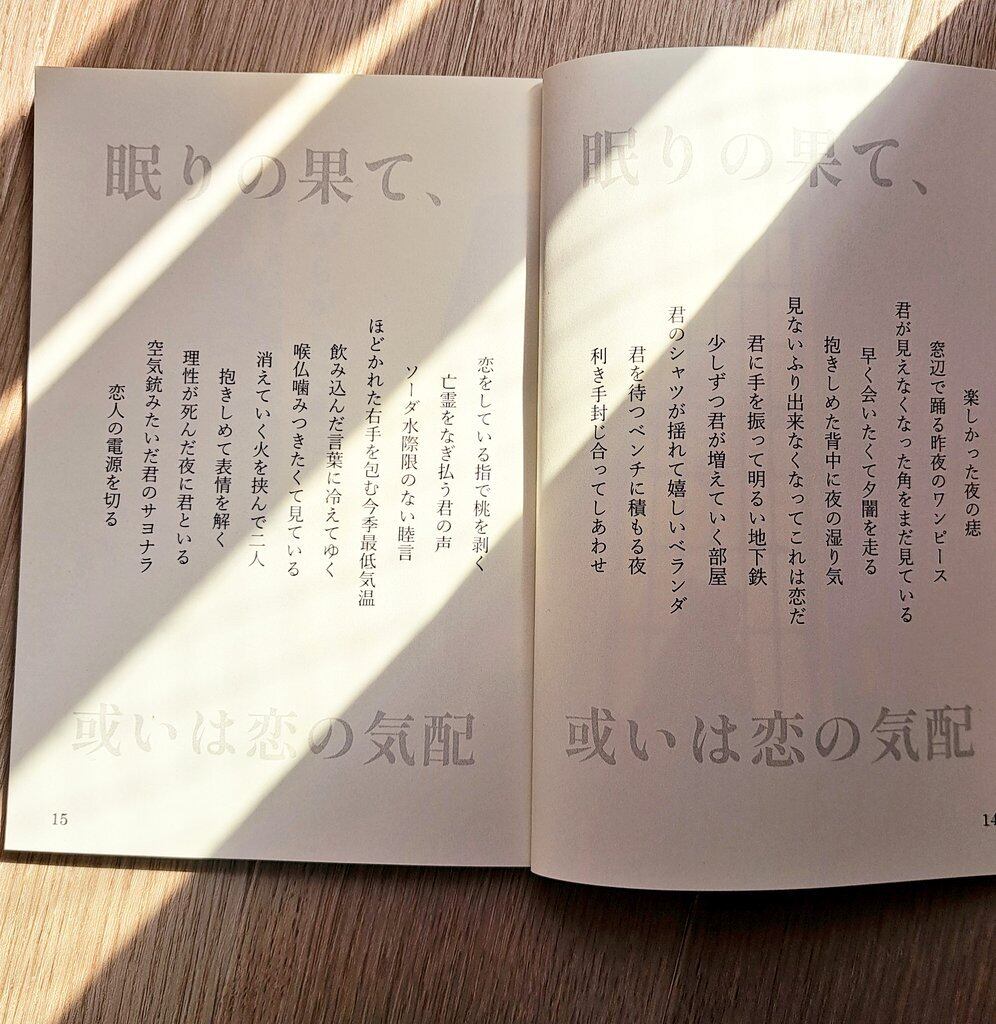 眠りの果て、
楽しかった夜の痣
窓辺で踊る昨夜のワンピース
君が見えなくなった角をまだ見ている
早く会いたくて夕闇を走る
抱きしめた背中に夜の湿り気
見ないふり出来なくなってこれは恋だ
君に手を振って明るい地下鉄
少しずつ君が増えていく部屋
君のシャツが揺れて嬉しいベランダ
君を待つベンチに積もる夜
利き手封じ合ってしあわせ
或いは恋の気配
14
眠りの果て、
恋をしている指で桃を剥く
亡霊をなぎ払う君の声
ソーダ水際限のない睦言
ほどかれた右手を包む今季最低気温
飲み込んだ言葉に冷えてゆく
喉仏噛みつきたくて見ている
消えていく火を挟んで二人
抱きしめて表情を解く
理性が死んだ夜に君といる
空気銃みたいだ君のサヨナラ
恋人の電源を切る
或いは恋の気配
15